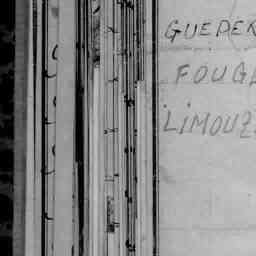 GUEDER
FOUGE
LIMOUZ